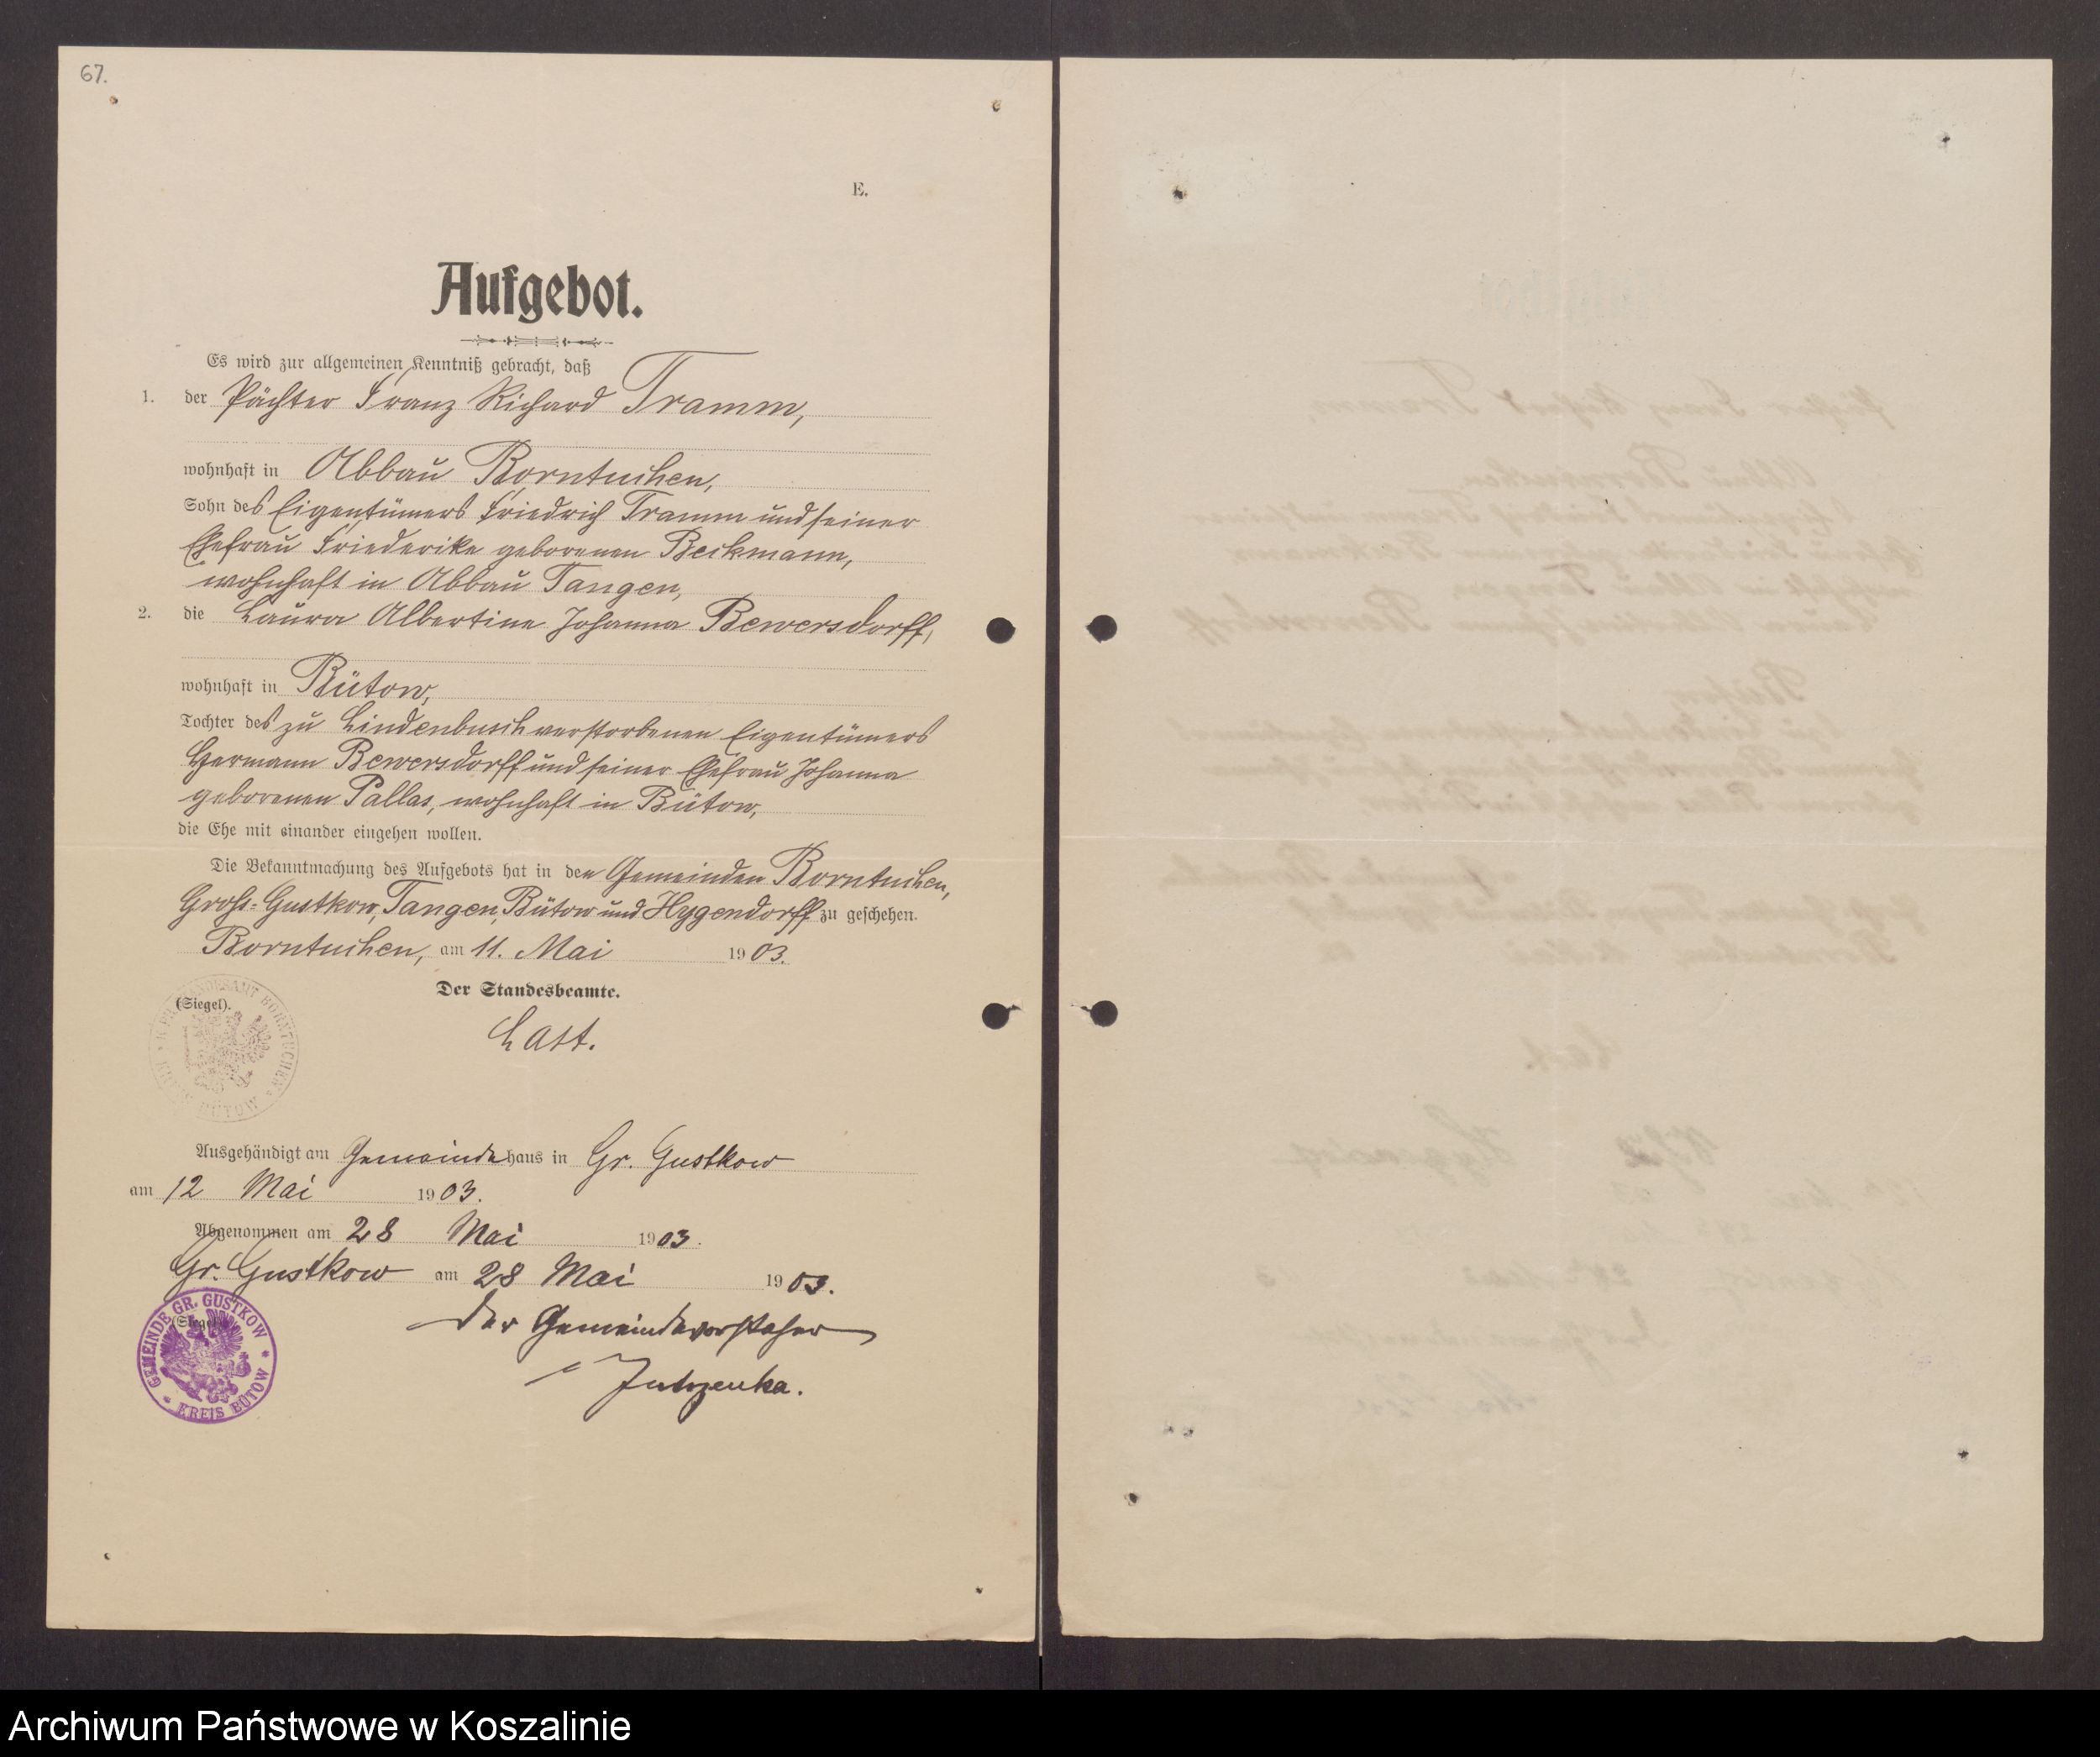 67.
E.
Aufgebot.
Es wird zur allgemeinen Kenntniß gebracht, daß
1. der Pächter Franz Richard Tramm,
wohnhaft in Abbau Borntuchen,
Sohn des Eigentümers Friedrich Tramm und seiner
Ehefrau Friederike geborenen Beckmann,
wohnhaft in Abbau Tangen,
2. die Laura Albertine Johanna Bewersdorff,
wohnhaft in Bütow,
Tochter des zu Lindenbusch verstorbenen Eigentümers
Hermann Bewersdorff und seiner Ehefrau Johanna
geborenen Pallas, wohnhaft in Bütow,
die Ehe mit einander eingehen wollen.
Die Bekanntmachung des Aufgebots hat in den Gemeinden Borntuchen,
Gross-Gustkow, Tangen, Bütow und Hygendorff zu geschehen.
Borntuchen, am 11. Mai 1903.
(Siegel).
Der Standesbeamte.
STANDESAMT BORNTUCHEN
KREIS BÜTOW
Last.
Ausgehändigt am Gemeindehaus in Gr. Gustkow
am 12 Mai 1903.
Abgenommen am 28 Mai 1903.
Gr. Gustkow am 28 Mai 1903.
(Siegel)
GEMEINDE GR. GUSTKOW
KREIS BÜTOW
Der Gemeindevorsteher
Archiwum Państwowe w Koszalinie